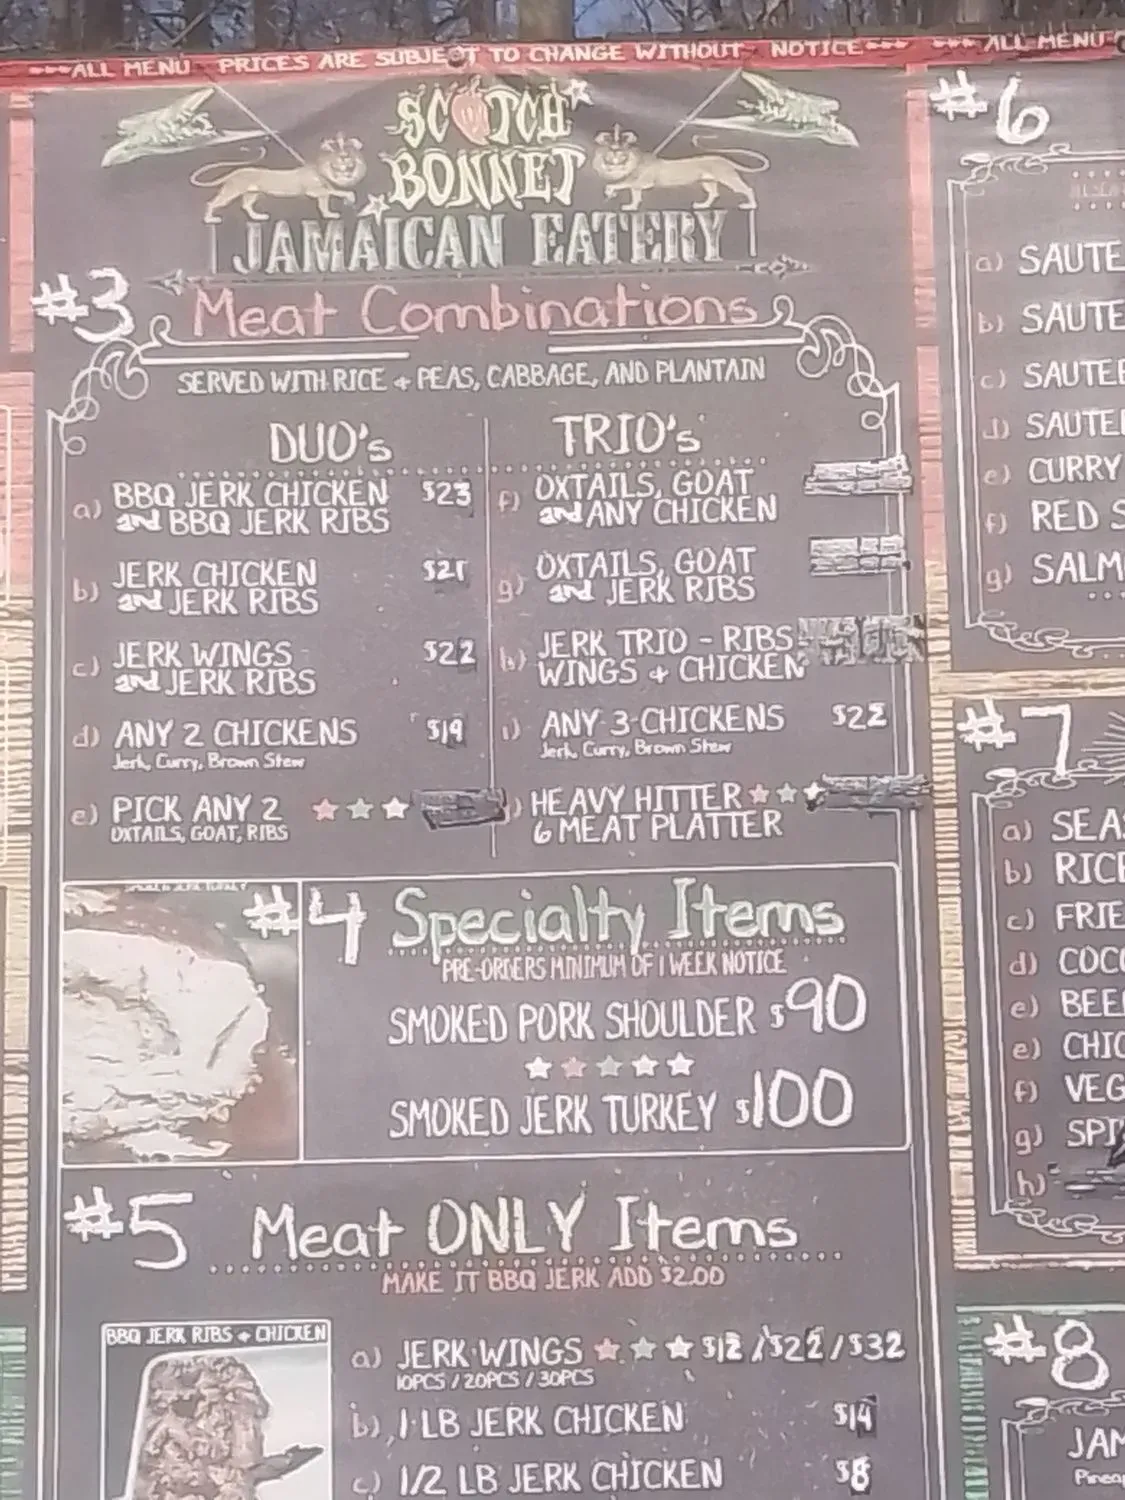 ***ALL MENU PRICES ARE SUBJECT TO CHANGE WITHOUT NOTICE*** ***ALL MENU
SCOTCH
BONNET
JAMAICAN EATERY
#3 Meat Combinations
SERVED WITH RICE + PEAS, CABBAGE, AND PLANTAIN
DUO's
a) BBQ JERK CHICKEN $23
and BBQ JERK RIBS
b) JERK CHICKEN $21
and JERK RIBS
c) JERK WINGS $22
and JERK RIBS
d) ANY 2 CHICKENS $19
Jerk, Curry, Brown Stew
e) PICK ANY 2
OXTAILS, GOAT, RIBS
TRIO's
f) OXTAILS, GOAT
and ANY CHICKEN
g) OXTAILS, GOAT
and JERK RIBS
h) JERK TRIO - RIBS
WINGS + CHICKEN
i) ANY 3 CHICKENS $22
Jerk, Curry, Brown Stew
) HEAVY HITTER
6 MEAT PLATTER
#4 Specialty Items
PRE-ORDERS MINIMUM OF 1 WEEK NOTICE
SMOKED PORK SHOULDER $90
SMOKED JERK TURKEY $100
#5 Meat ONLY Items
MAKE IT BBQ JERK ADD $2.00
BBQ JERK RIBS + CHICKEN
a) JERK WINGS $12 / $22 / $32
10PCS / 20PCS / 30PCS
b) 1 LB JERK CHICKEN $14
c) 1/2 LB JERK CHICKEN $8
#6
a) SAUTE
b) SAUTE
c) SAUTEE
d) SAUTE
e) CURRY
f) RED S
g) SALM
#7
a) SEAS
b) RICE
c) FRIE
d) COCO
e) BEE
e) CHIC
f) VEG
g) SPI
h)
#8
JAM
Pineap